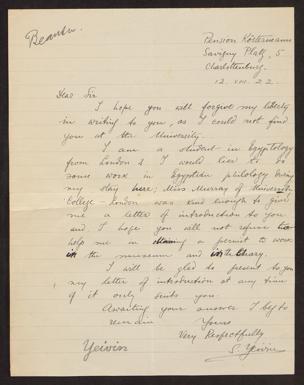 Beantw.
Pension Köstermann
Savigny Platz, 5
Charlottenburg.
12. VIII. 22.
Dear Sir
I hope you will forgive my liberty
in writing to you, as I could not find
you at the University.
I am a student in Egyptology
from London & I would like to do
some work in Egyptian philology during
my stay here. Miss Murray of University
College - London was kind enough to give
me a letter of introduction to you
and I hope you will not refuse to
help me in a permit to work
in the museum and in the library.
I will be glad to present to you
my letter of introduction at any time
if it only suits you.
Awaiting your answer I beg to
remain Yours
Very Respectfully
Yeivin S. Yeivin